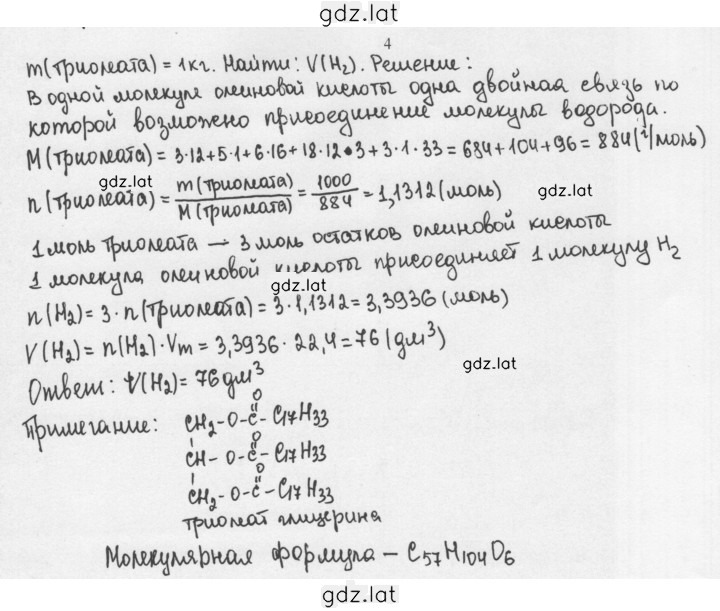 gdz.lat
4
m(триолеата) = 1кг. Найти: V(H₂). Решение:
В одной молекуле олеиновой кислоты одна двойная связь по
которой возможено присоединение молекулы водорода.
M(триолеата) = 3·12+5·1+6·16+18·12·3+3·1·33=684+104+96=884(г/моль)
gdz.lat gdz.lat
n(триолеата) = m(триолеата)/M(триолеата) = 1000/884 = 1,1312(моль)
1 моль триолеата → 3 моль остатков олеиновой кислоты
1 молекула олеиновой кислоты присоединяет 1 молекулу H₂
gdz.lat
n(H₂) = 3·n(триолеата) = 3·1,1312 = 3,3936(моль)
V(H₂) = n(H₂)·Vm = 3,3936·22,4 = 76(дм³)
gdz.lat
Ответ: V(H₂) = 76дм³
Примечание:
O
CH₂-O-C-C₁₇H₃₃
O
CH-O-C-C₁₇H₃₃
O
CH₂-O-C-C₁₇H₃₃
триолеат глицерина
Молекулярная формула – C₅₇H₁₀₄O₆
gdz.lat